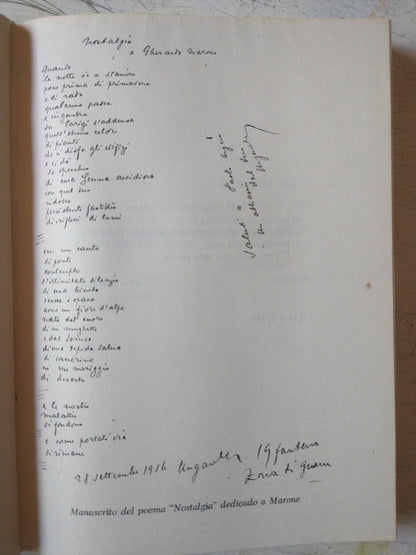 Nostalgia
a Gherardo Marone
Quando
la notte è a svanire
poco prima di primavera
e di rado
qualcuno passa
e ingombra
su Parigi s'addensa
quell'oscuro colore
di pianti
che ci disfa gli
e ci dà
lo specchio
di una Senna accidiosa
con quel suo
ridosso
persistenti fastidio
di riflessi di lumi
in un canto
di ponte
contemplo
s'illimitato silenzio
di una bimba
tenue e opaco
come un fiore d'alpe
nata del amore
di un mughetto
e del sorriso
di una tepida saliva
di canerino
in un meriggio
di deserto
e le nostre
malattie
si fondono
e come portati via
si rimane
28 settembre 1916 Ungaretti 19 fanteria
Zona di Guerra
Saluti a Paolo
Un abbraccio dal tuo
Manuscrito del poema "Nostalgia" dedicado a Marone